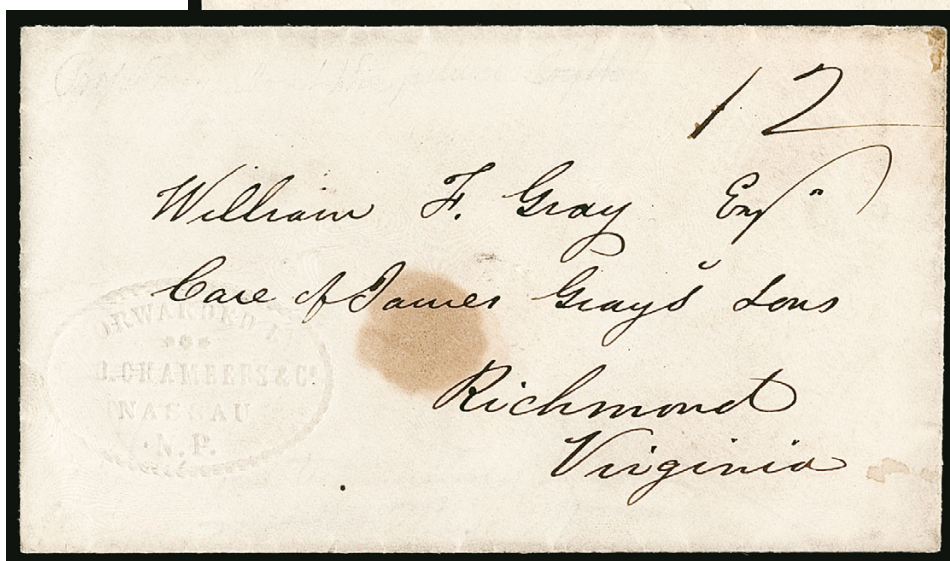 12
William F. Gray Esqr
Care of James Gray's Sons
Richmond
Virginia
CHAMBERS & Co.
NASSAU
N.P.